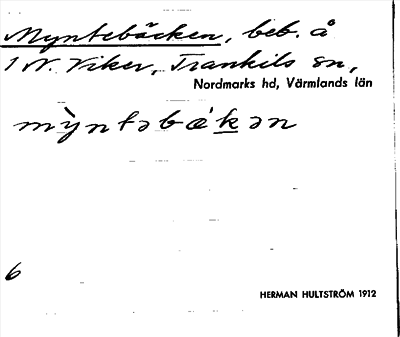 Myntebäcken, beb. å
1 N. Viker, Trankils sn,
Nordmarks hd, Värmlands län
mỳntəbǽkən
6
HERMAN HULTSTRÖM 1912